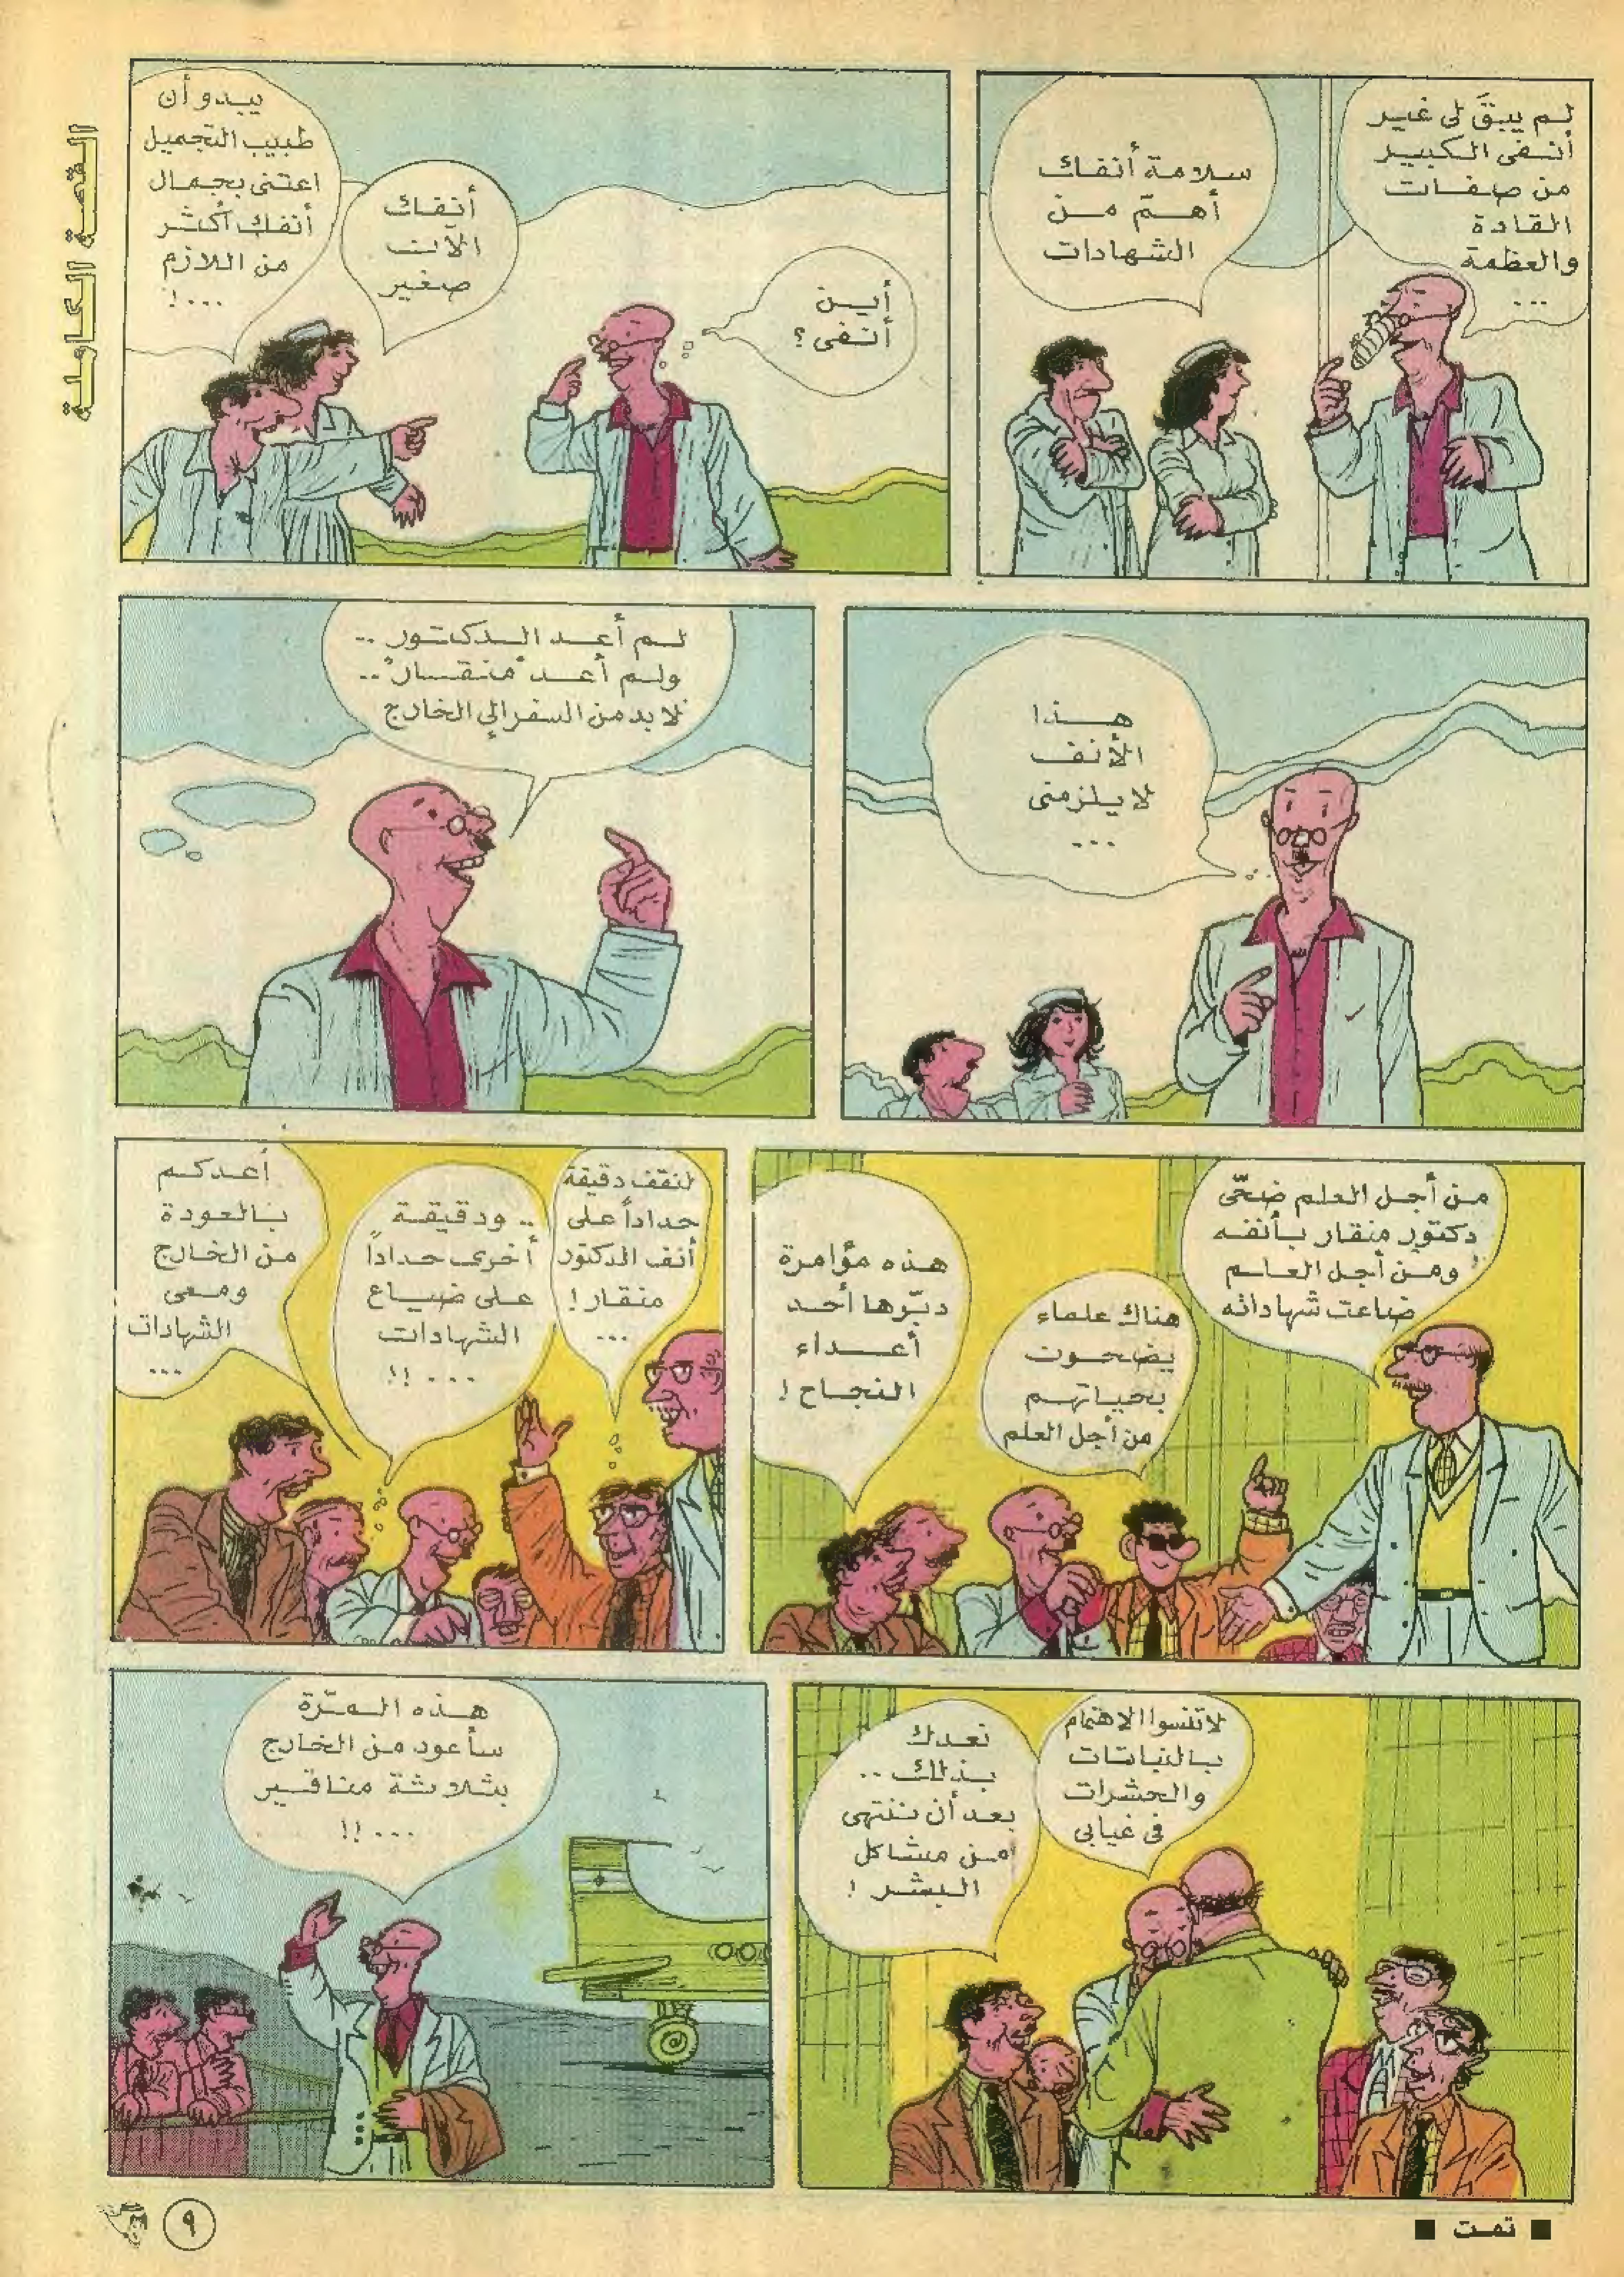 القصة الكاملة
لم يبقَ لى غير
أنفى الكبير
من صفات
القادة
والعظمة
...
سلامة أنفك
أهمّ من
الشهادات
أين
أنفى؟
أنفك
الآن
صغير
يبدو أن
طبيب التجميل
اعتنى بجمال
أنفك أكثر
من اللازم
...!
هذا
الأنف
لا يلزمنى
...
لم أعد الدكتور ..
ولم أعد "منقار" ..
لابد من السفر إلى الخارج
من أجل العلم ضحّى
دكتور منقار بأنفه
ومن أجل العلم
ضاعت شهاداته
هناك علماء
يضحون
بحياتهم
من أجل العلم
هذه مؤامرة
دبّرها أحد
أعداء
النجاح!
لنقف دقيقة
حداداً على
أنف الدكتور
منقار!
...
.. ودقيقة
أخرى حداداً
على ضياع
الشهادات
...!!
أعدكم
بالعودة
من الخارج
ومعى
الشهادات
...
لا تنسوا الاهتمام
بالنباتات
والحشرات
فى غيابى
نعدك
بذلك ..
بعد أن ننتهى
من مشاكل
البشر!
هذه المرّة
سأعود من الخارج
بثلاثة مناقير
...!!
تمت
٩